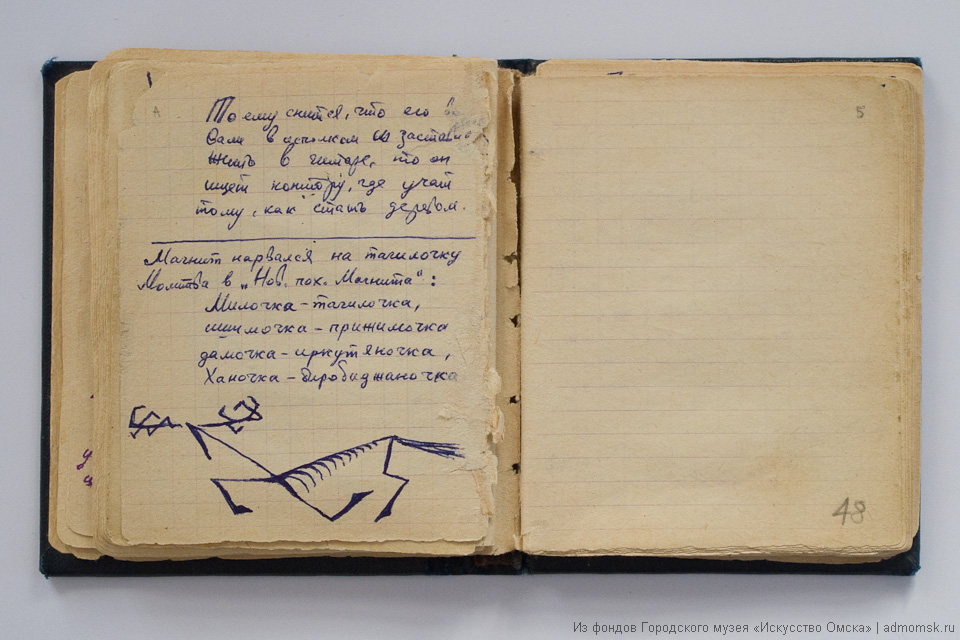 А
То ему снится, что его
вали в и заставл
жить в гитаре, то он
ищет контору, где учат
тому, как стать деревом.
Магнит нарвался на тагилочку
Молитва в „Нов. пох. Магнита“:
Милочка – тагилочка,
ишимочка – прижимочка
дамочка – иркутяночка,
Ханочка – биробиджаночка
5
48
Из фондов Городского музея «Искусство Омска» | admomsk.ru